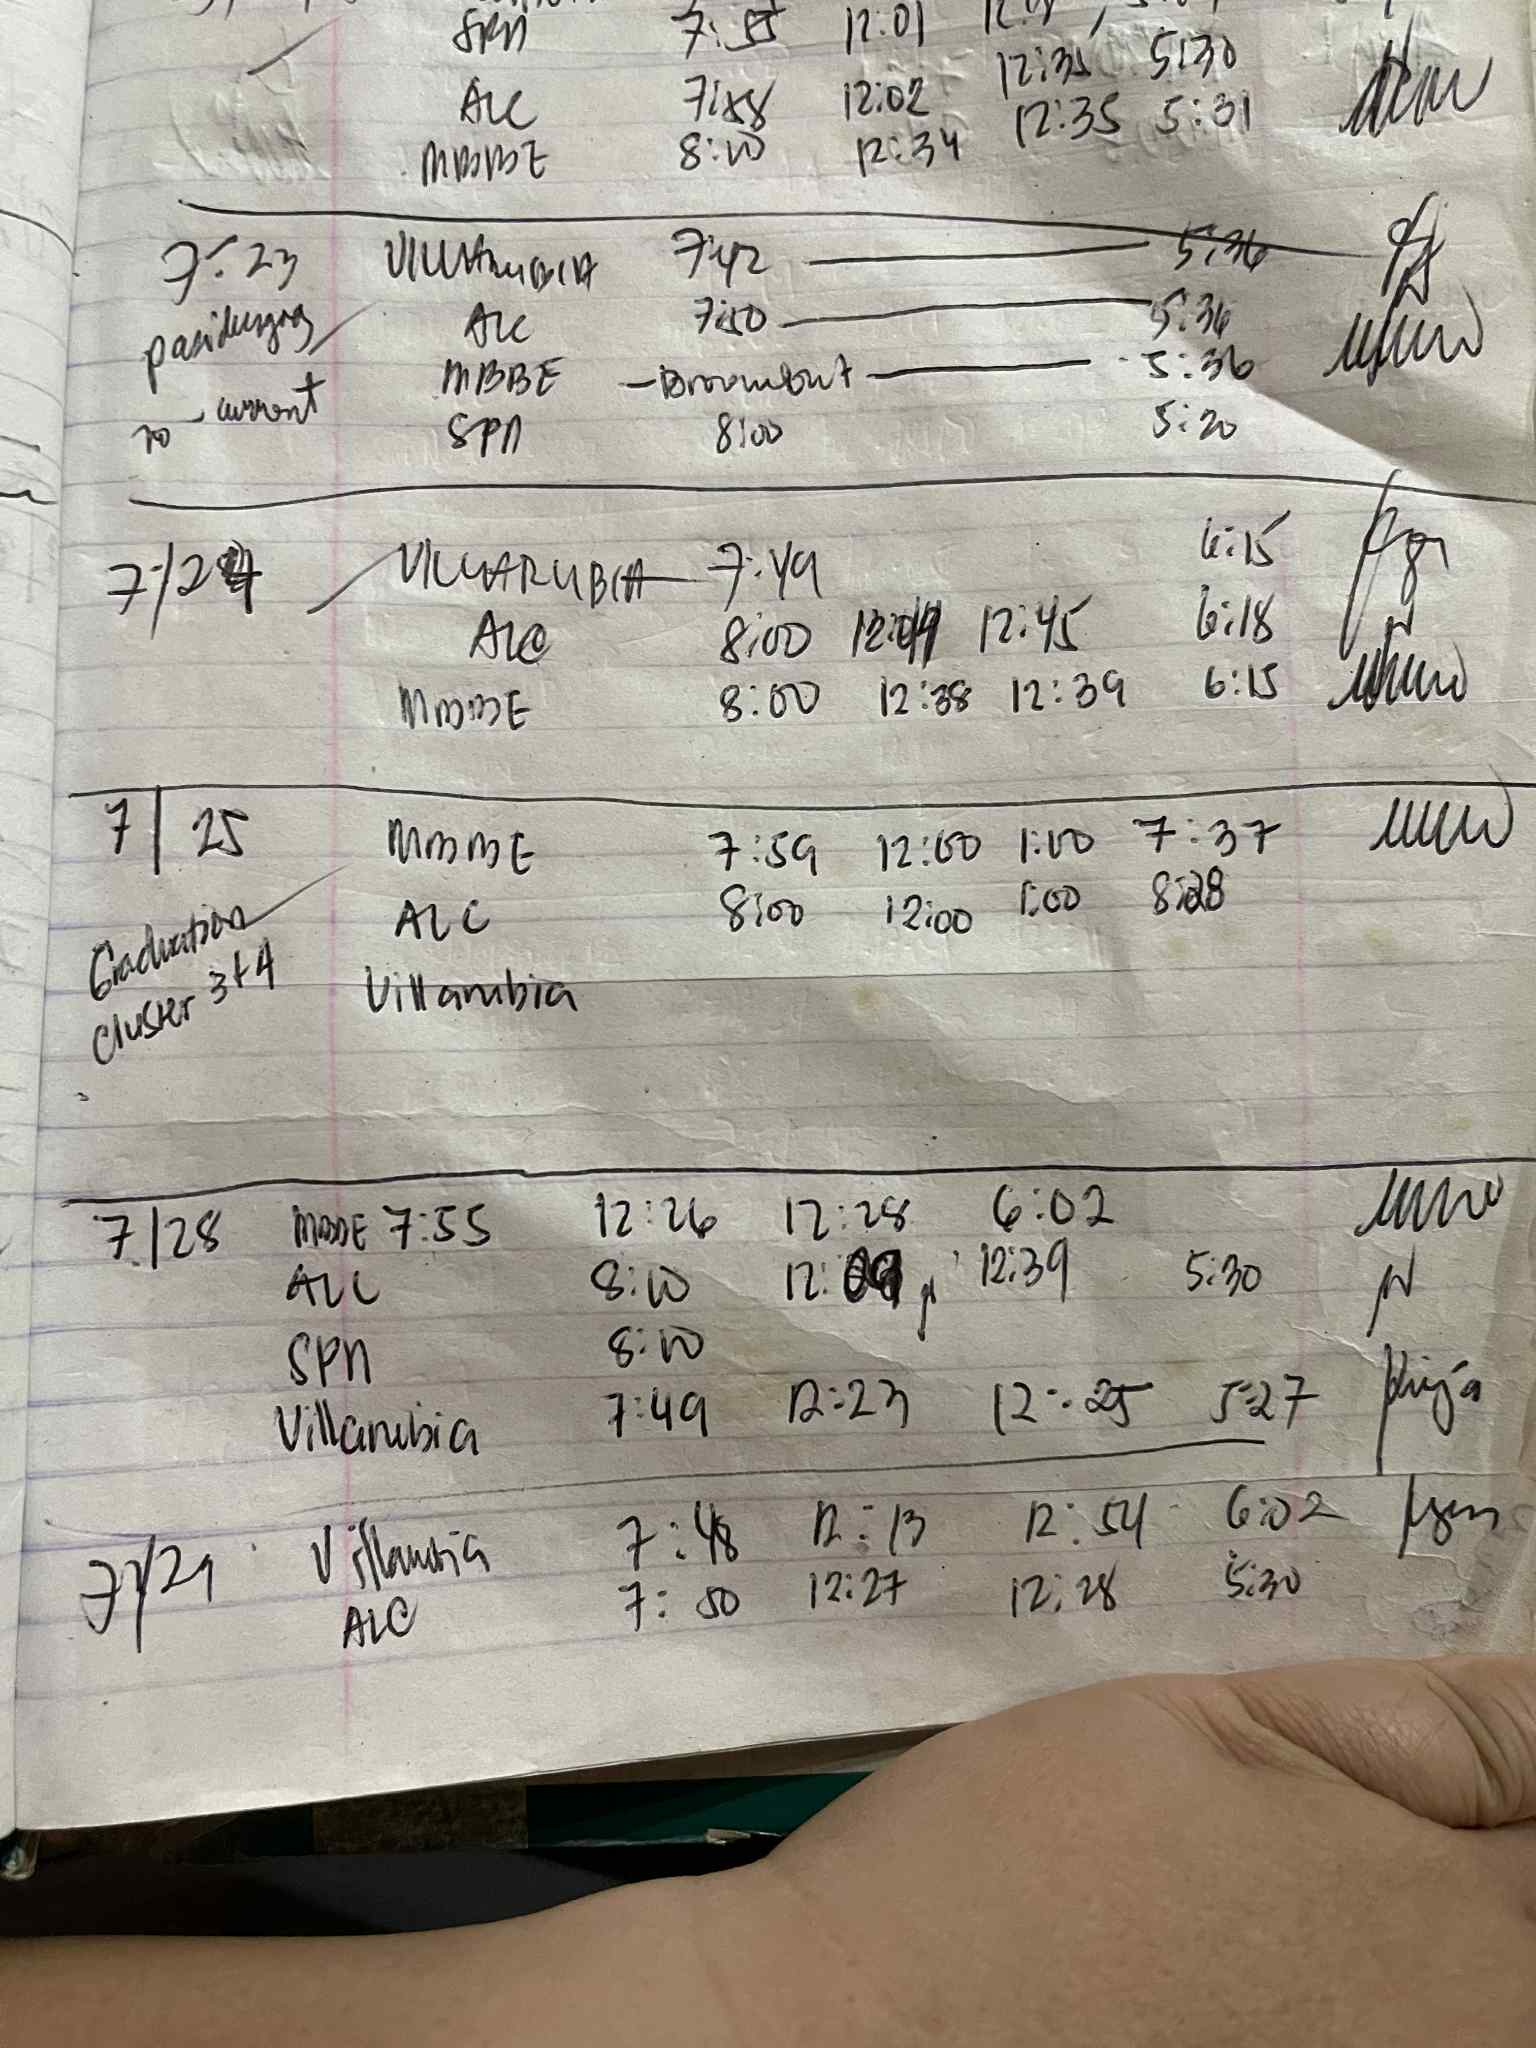 SPN 7:55 12:01
ALC 7:58 12:02 12:35 5:30
MBBE 8:00 12:34 12:35 5:31
7-23 VILLARUBIA 7:42 5:36
ALC 7:50 5:36
no current MBBE 5:36
SPN 8:00 5:20
7/24 VILLARUBIA 7:49 6:15
ALC 8:00 12:45 6:18
MBBE 8:00 12:38 12:39 6:15
7/25 MBBE 7:59 12:00 1:00 7:37
ALC 8:00 12:00 1:00 8:28
Graduation
cluster 3+4
Villarubia
7/28 MBBE 7:55 12:26 12:28 6:02
ALC 8:00 12:39 5:30
SPN 8:00
Villarubia 7:49 12:23 12:25 5:27
7/29 Villarubia 7:48 12:13 12:54 6:02
ALC 7:50 12:27 12:28 5:30